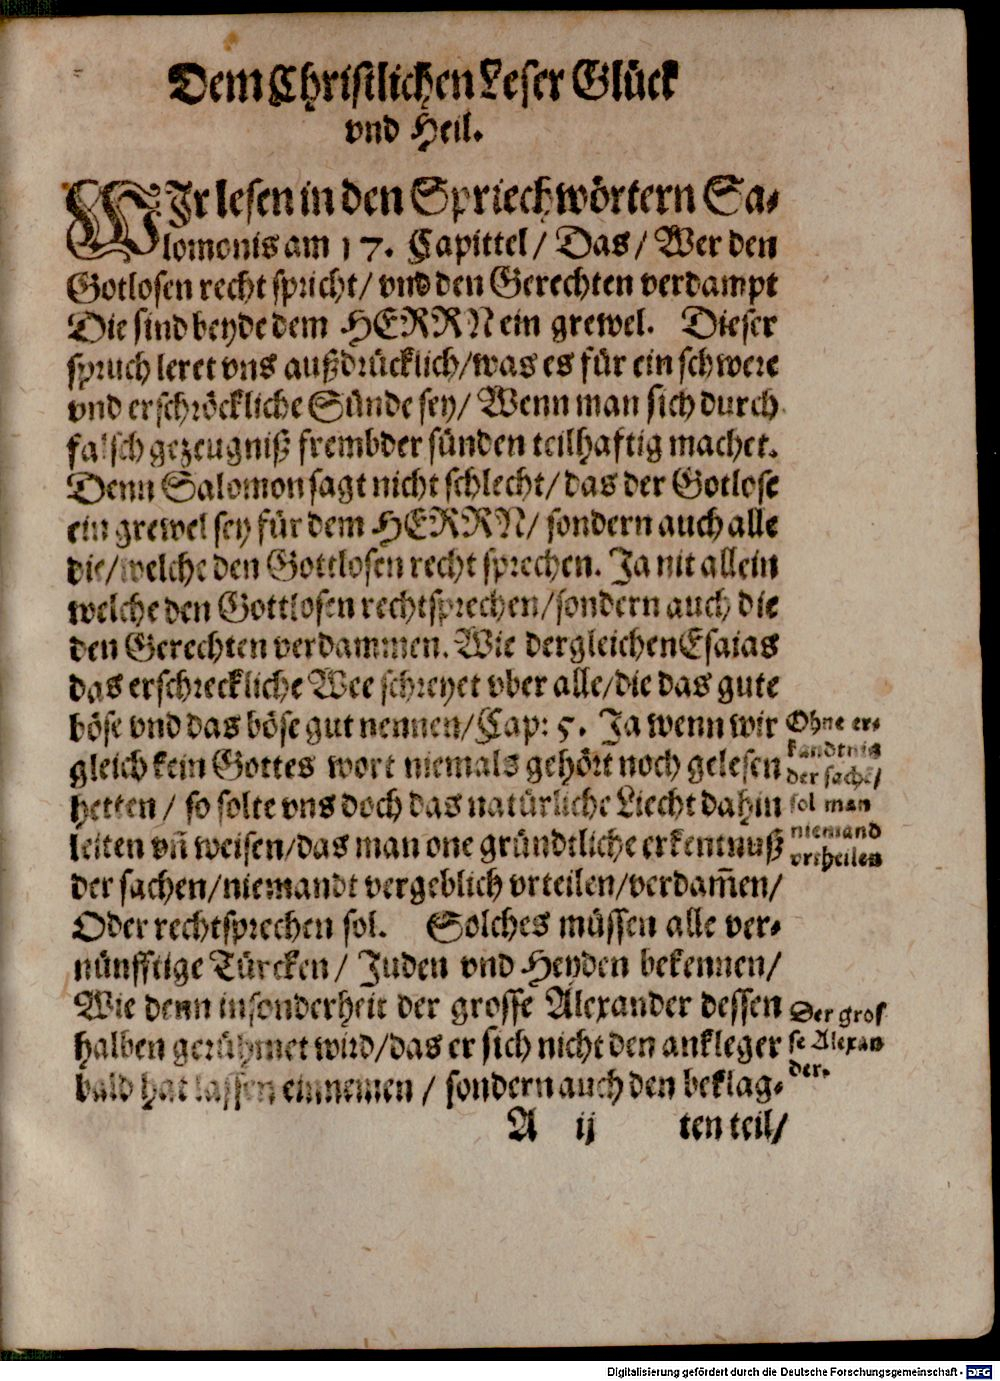 Dem Christlichen Leser Glück
vnd Heil.
WIr lesen in den Spriechwörtern Sa-
lomonis am 17. Capittel / Das / Wer den
Gotlosen recht spricht / vnd den Gerechten verdampt
Die sind beyde dem HERRN ein grewel. Dieser
spruch leret vns außdrücklich / was es für ein schwere
vnd erschröckliche Sünde sey / Wenn man sich durch
falsch gezeugniß frembder sünden teilhaftig machet.
Denn Salomon sagt nicht schlecht / das der Gotlose
ein grewel sey für dem HERRN / sondern auch alle
die / welche den Gottlosen recht sprechen. Ja nit allein
welche den Gottlosen rechtsprechen / sondern auch die
den Gerechten verdammen. Wie dergleichen Esaias
das erschreckliche Wee schreyet vber alle / die das gute
böse vnd das böse gut nennen / Cap: 5. Ja wenn wir
gleich kein Gottes wort niemals gehört noch gelesen
hetten / so solte vns doch das natürliche Liecht dahin
leiten vñ weisen / das man one gründtliche erkentnuß
der sachen / niemandt vergeblich vrteilen / verdam̃en /
Oder rechtsprechen sol. Solches müssen alle ver-
nünfftige Türcken / Juden vnd Heyden bekennen /
Wie denn insonderheit der grosse Alexander dessen
halben gerühmet wird / das er sich nicht den ankleger
bald hat lassen einnemen / sondern auch den beklag-
A ij ten teil /
Ohne er-
kandtnis
der sache /
sol man
niemand
vrtheilen
Der gros
se Alexan
der.
Digitalisierung gefördert durch die Deutsche Forschungsgemeinschaft - DFG